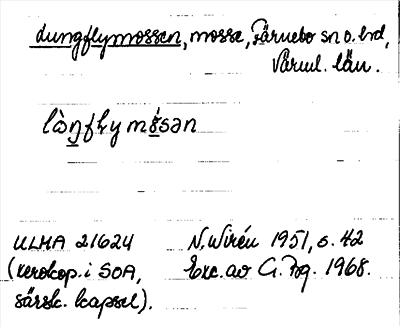 Lungflymossen, mosse, Färnebo sn o. hd,
Värml. län.
lòŋfly mósən
ULMA 21624 N. Wirén 1951, s. 42
(xerokop. i SOA, Exc. av G. Pg. 1968.
särsk. kapsel).